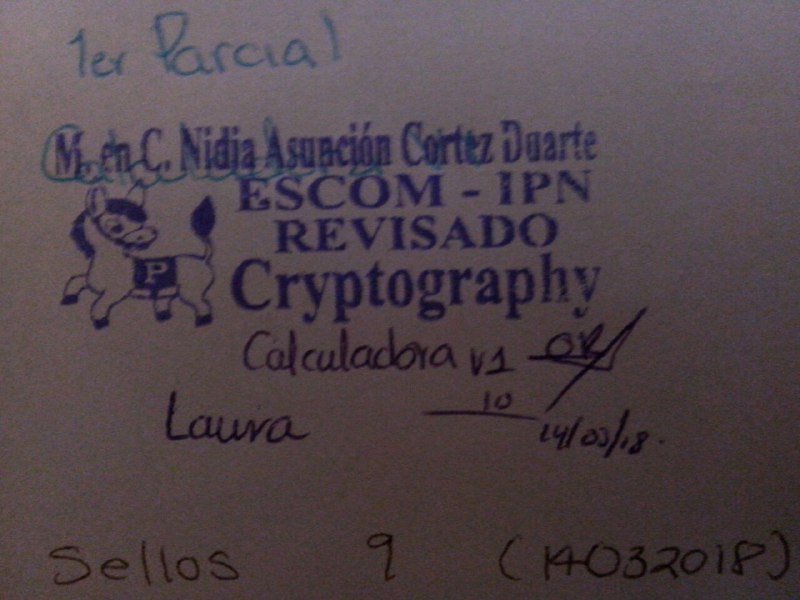 1er Parcial
M. en C. Nidia Asunción Cortez Duarte
ESCOM - IPN
REVISADO
P
Cryptography
Calculadora v1 OK
10
Laura
14/03/18.
Sellos 9 (14032018)